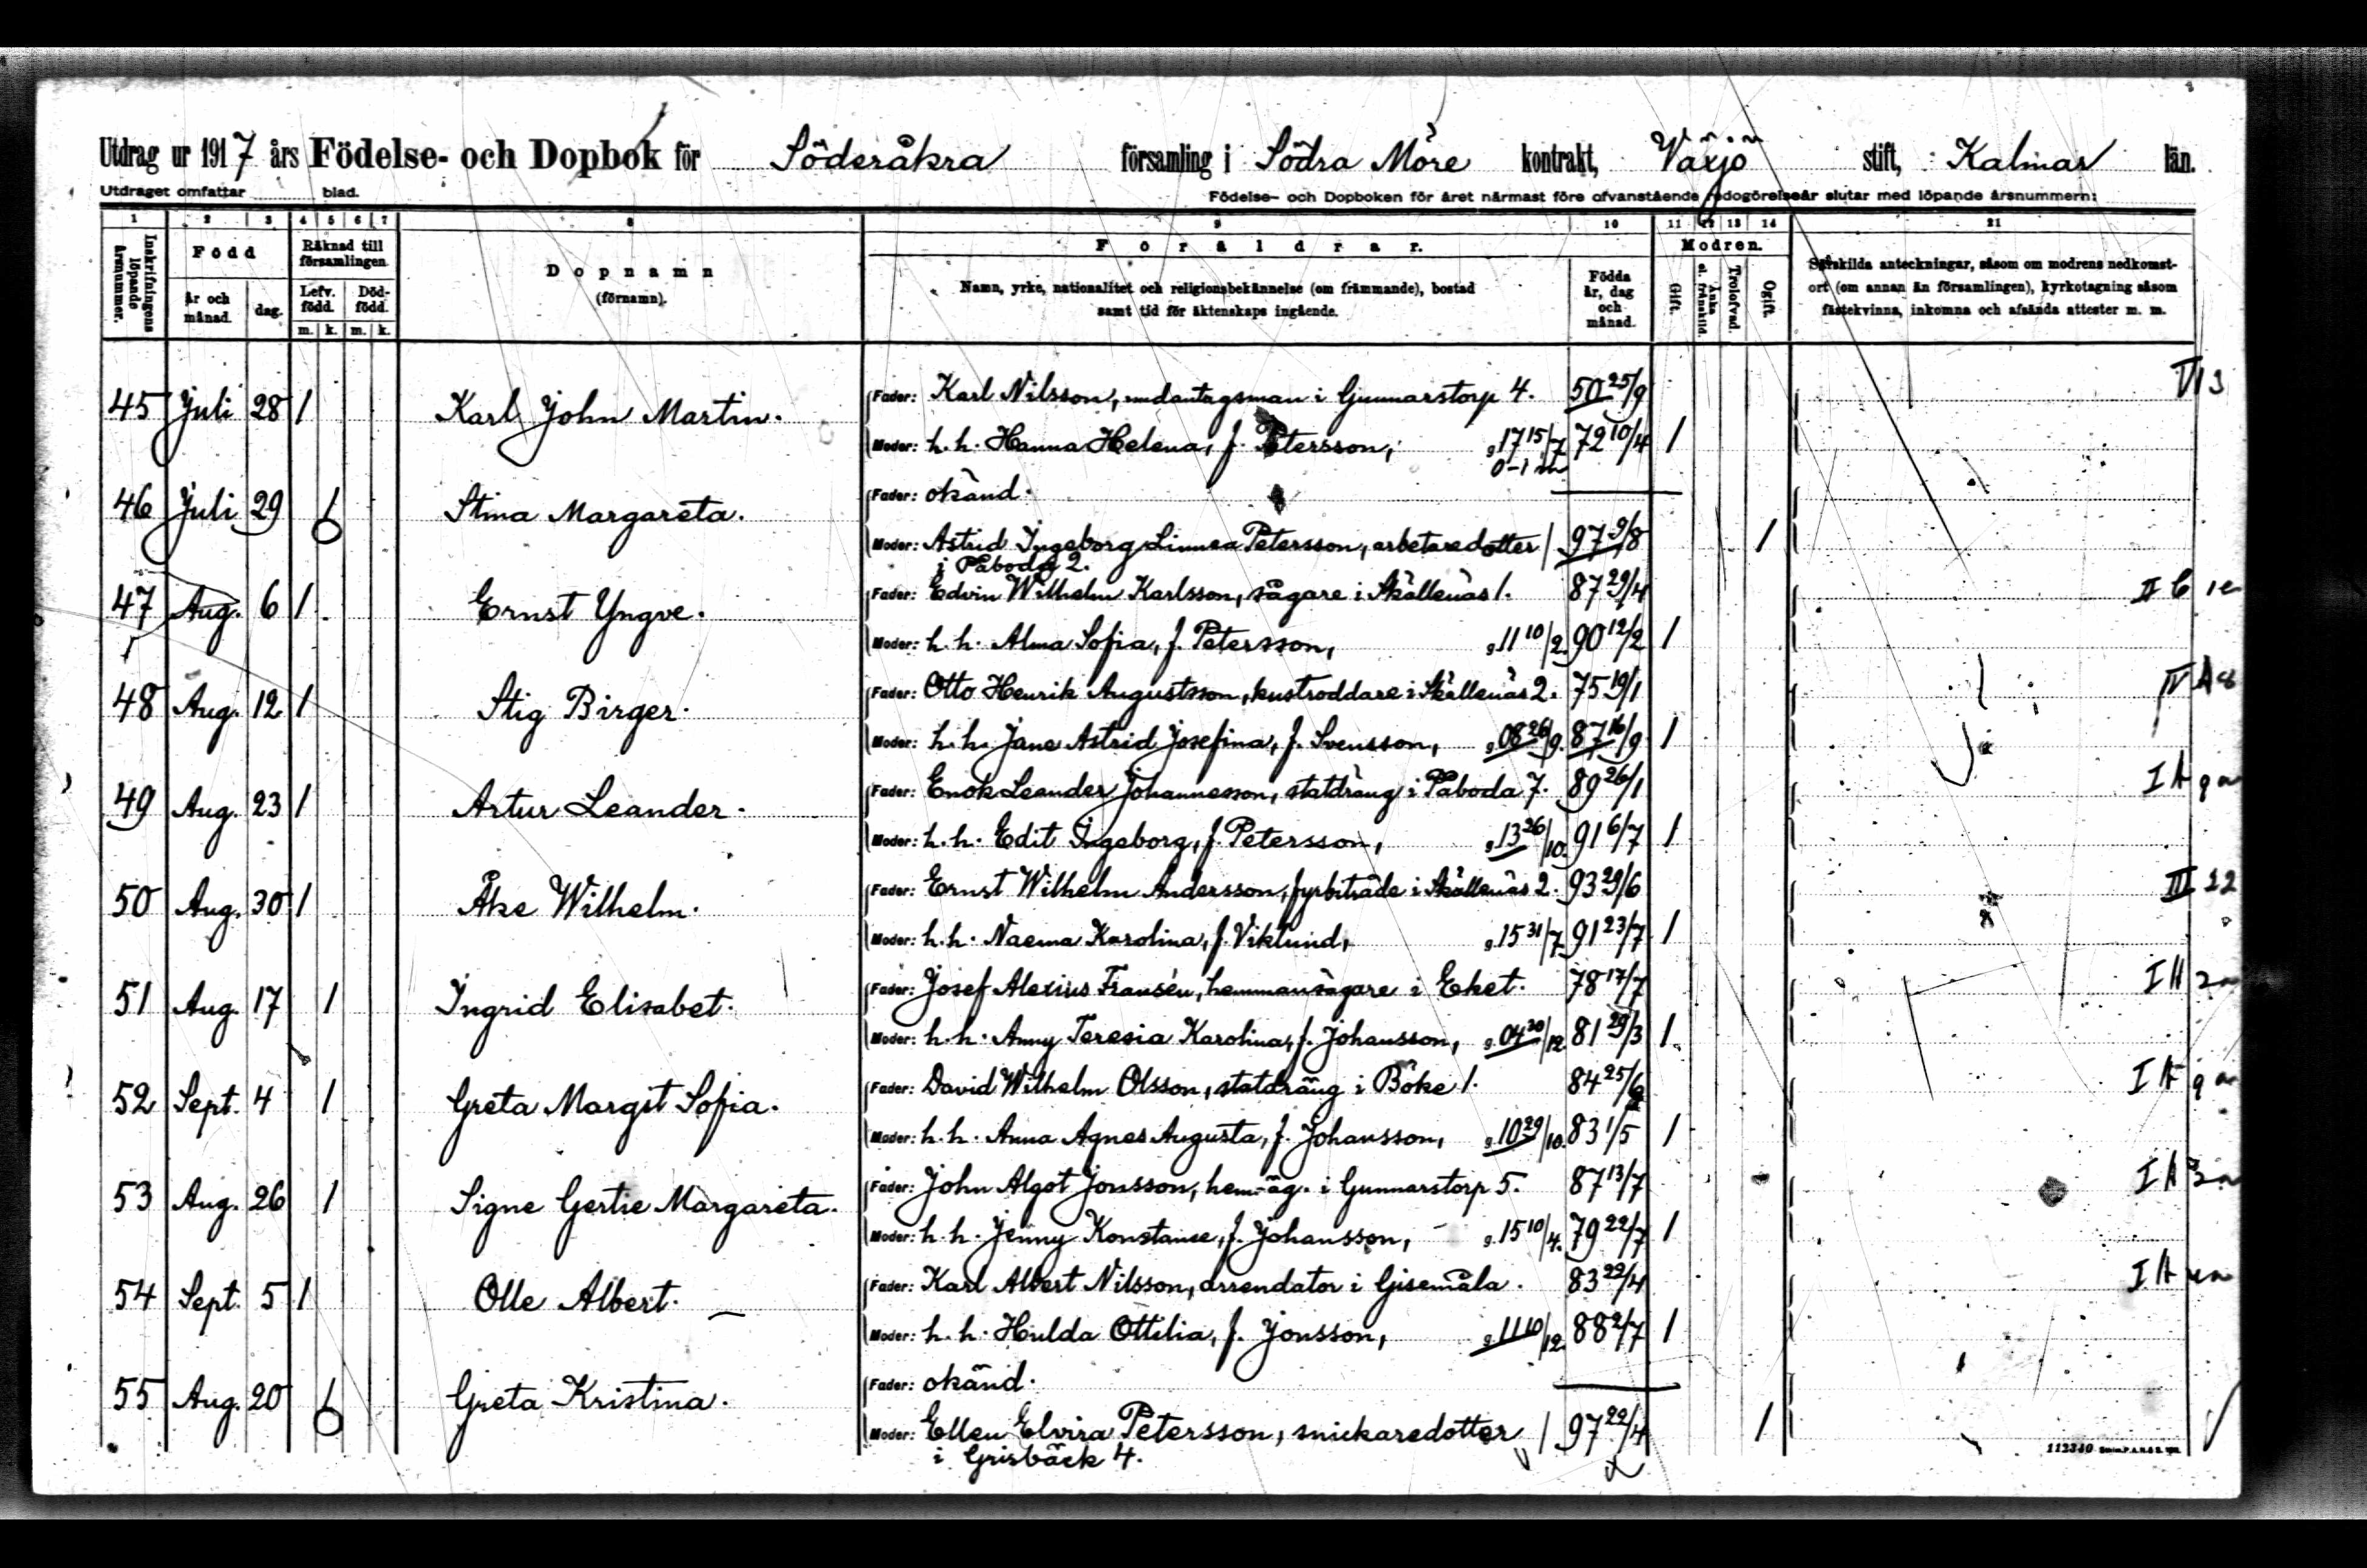 Utdrag ur 1917 års Födelse- och Dopbok för Söderåkra församling i Södra Möre kontrakt, Växjö stift, Kalmar län.
Utdraget omfattar blad. Födelse- och Dopboken för året närmast före ofvanstående redogörelseår slutar med löpande årsnummern:
1 2 3 4 5 6 7 8 9 10 11 12 13 14 21
Inskrifningens löpande årsnummer.
Född
År och månad.
dag.
Räknad till församlingen
Lefv. född. Död-född.
m. k. m. k.
Dopnamn
(förnamn).
Föräldrar.
Namn, yrke, nationalitet och religionsbekännelse (om främmande), bostad
samt tid för äktenskaps ingående.
Födda
år, dag
och
månad.
Modren.
Gift.
Änka el. frånskild.
Trolofvad.
Ogift.
Särskilda anteckningar, såsom om modrens nedkomst-
ort (om annan än församlingen), kyrkotagning såsom
fästekvinna, inkomna och afsända attester m. m.
45 Juli 28 1 Karl John Martin. Fader: Karl Nilsson, undantagsman i Gunnarstorp 4. 50 25/9 VI 3
Moder: h. h. Hanna Helena, f. Petersson, g. 17 15/7 72 10/4 1
0-1 m
46 Juli 29 1 Stina Margareta. Fader: okänd.
Moder: Astrid Ingeborg Linnea Petersson, arbetaredotter 97 9/8 1
i Påboda 2.
47 Aug. 6 1 Ernst Yngve. Fader: Edvin Wilhelm Karlsson, sågare i Skällenäs 1. 87 29/4 II b 1e
Moder: h. h. Alma Sofia, f. Petersson, g. 11 10/2. 90 12/2 1
48 Aug. 12 1 Stig Birger. Fader: Otto Henrik Augustsson, kustroddare i Skällenäs 2. 75 19/1 IV A 8
Moder: h. h. Jane Astrid Josefina, f. Svensson, g. 08 26/9. 87 16/9 1
49 Aug. 23 1 Artur Leander. Fader: Enok Leander Johannesson, statdräng i Påboda 7. 89 26/1 I A 9 a
Moder: h. h. Edit Ingeborg, f. Petersson, g. 13 26/10. 91 6/7 1
50 Aug. 30 1 Åke Wilhelm. Fader: Ernst Wilhelm Andersson, fyrbiträde i Skällenäs 2. 93 29/6 III 22
Moder: h. h. Naema Karolina, f. Viklund, g. 15 31/7 91 23/7 1
51 Aug. 17 1 Ingrid Elisabet. Fader: Josef Alexius Fransén, hemmansägare i Eket. 78 17/7 I A 2a
Moder: h. h. Anny Teresia Karolina, f. Johansson, g. 04 30/12 81 29/3 1
52 Sept. 4 1 Greta Margit Sofia. Fader: David Wilhelm Olsson, statdräng i Böke 1. 84 25/6 I A 9 a
Moder: h. h. Anna Agnes Augusta, f. Johansson, g. 10 29/10. 83 1/5 1
53 Aug. 26 1 Signe Gertie Margareta. Fader: John Algot Jonsson, hem.äg. i Gunnarstorp 5. 87 13/7 I A 3a
Moder: h. h. Jenny Konstanse, f. Johansson, g. 15 10/4. 79 22/7 1
54 Sept. 5 1 Olle Albert. Fader: Karl Albert Nilsson, arrendator i Gisemåla. 83 22/4 I A
Moder: h. h. Hulda Ottilia, f. Jonsson, g. 11 10/12. 88 2/7 1
55 Aug. 20 1 Greta Kristina. Fader: okänd.
Moder: Ellen Elvira Petersson, snickaredotter 97 22/4 1
i Grisbäck 4.
112340